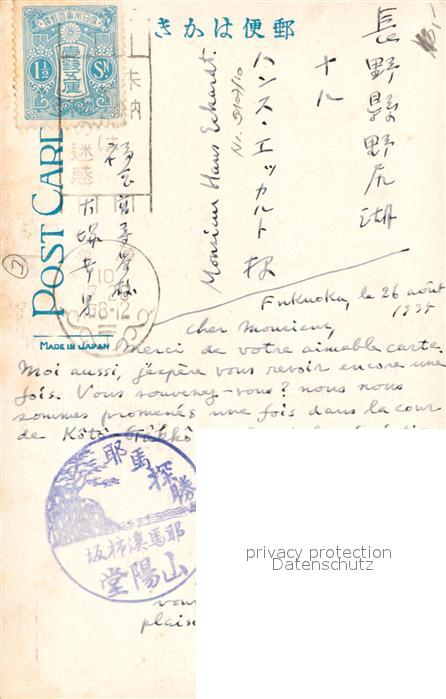 郵便はかき
1½ Sn
POST CARD
MADE IN JAPAN
長野縣野尻湖
ハンス・エッカルト 様
Monsieur Hans Eckardt.
福岡高等学校
大塚幸男
未納
は
迷惑
Fukuoka, le 26 août
1935
Cher Monsieur,
Merci de votre aimable carte.
Moi aussi, j'espère vous revoir encore une
fois. Vous souvenez-vous? nous nous
sommes promenés une fois dans la cour
de Kôtô-Gakkô
耶馬探勝
耶馬溪柿坂
山陽堂
vous
plais
privacy protection
Datenschutz